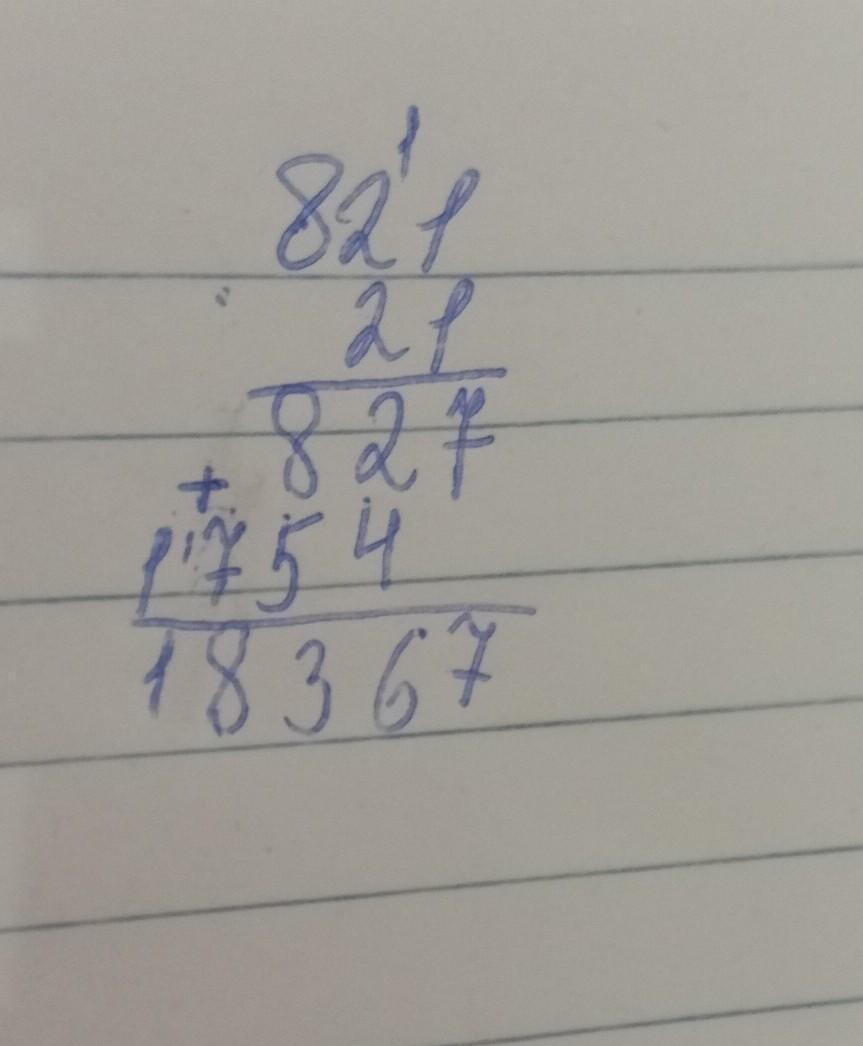 1
821
21
827
+
1'754
18367